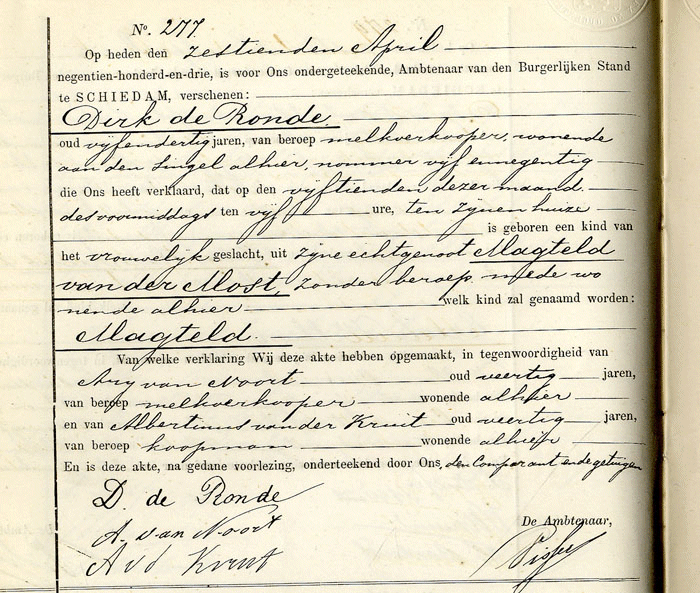 No. 277.
Op heden den zestienden April
negentien-honderd-en-drie, is voor Ons ondergeteekende, Ambtenaar van den Burgerlijken Stand
te SCHIEDAM, verschenen:
Dirk de Ronde.
oud vijfendertig jaren, van beroep melkverkooper, wonende
aan den Singel alhier, nommer vijf en negentig
die Ons heeft verklaard, dat op den vijftienden dezer maand
des voormiddags ten vijf ure, ten zijnen huize
is geboren een kind van
het vrouwelijk geslacht, uit zijne echtgenoot Magteld
van der Most, zonder beroep, mede wo
nende alhier welk kind zal genaamd worden:
Magteld.
Van welke verklaring Wij deze akte hebben opgemaakt, in tegenwoordigheid van
Ary van Noort oud veertig jaren,
van beroep melkverkooper wonende alhier
en van Albertinus van der Kruit oud veertig jaren,
van beroep koopman wonende alhier
En is deze akte, na gedane voorlezing, onderteekend door Ons, den Comparant en de getuigen
D. de Ronde
A. van Noort
A v d Kruit
De Ambtenaar,